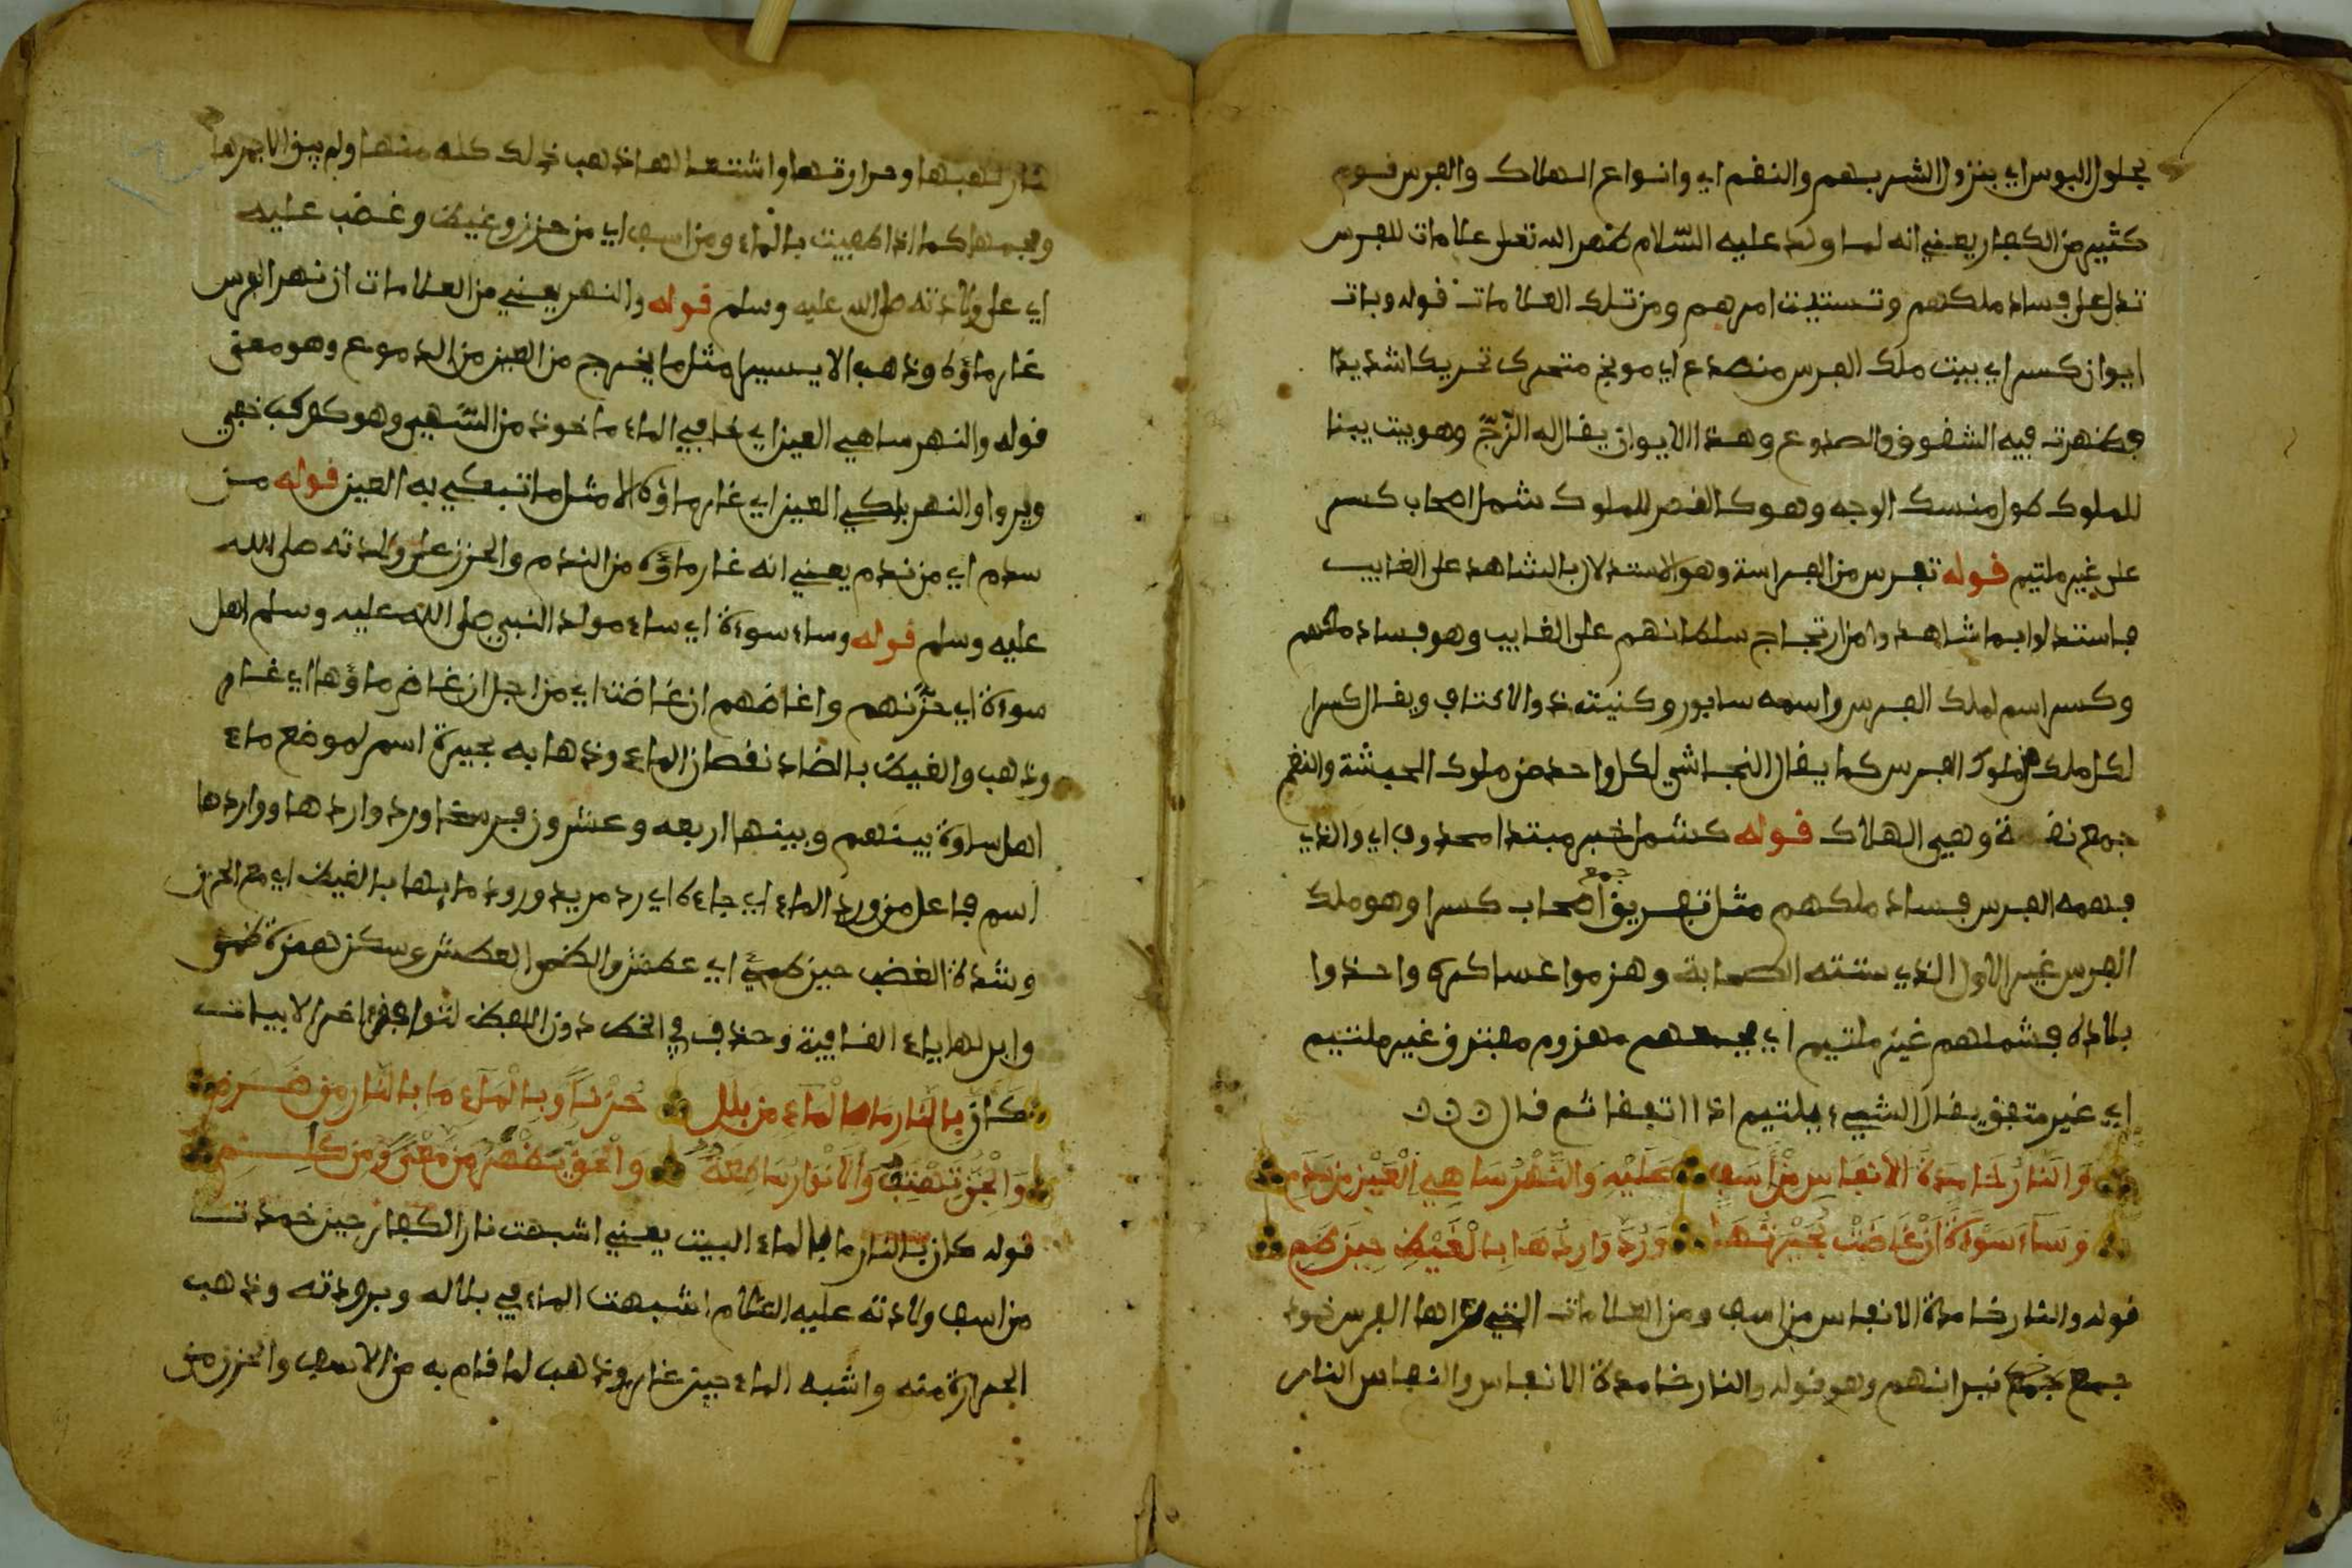 بحلول البوس اي بنزول الشر بهم والنقم اي وانواع الهلاك والفرس قوم
كثير من الكفار يعني انه لما ولد عليه السلام ظهر الله تعلى علامات للفرس
تدل على فساد ملكهم وتشتيت امرهم ومن تلك العلامات قوله وبات
ايوان كسرا اي بيت ملك الفرس منصدع اي متحرك تحريكا شديدا
فظهرت فيه الشقوق والصدوع وهذا الايوان يقال له الزج وهو بيت يبنا
للملوك طول الوجه وهو كالقصر للملوك شمل اصحاب كسر
على غير ملتيم قوله تفرس من الفراسة وهو الاستدلال بالشاهد على الغايب
فاستدلوا بما شاهدوا من ارتجاج سلطانهم على الغايب وهو فساد ملكهم
وكسر اسم لملك الفرس واسمه سابور وكنيته ذو الاكتاف ويقال كسرا
لكل ملك من ملوك الفرس كما يقال النجاشي لكل واحد من ملوك الحبشة والنقم
جمع نقمة وهي الهلاك قوله كشمل خبر مبتدا محذوف اي والذي
فهمه الفرس فساد ملكهم مثل تفريق جمع اصحاب كسرا وهو ملك
الفرس غير الاول الذي شتته الصحابة وهزموا عساكره واخذوا
بلاده فشملهم غير ملتيم اي فجمعهم مهزوم مفترق غير ملتيم
اي غير متفق يقال الشيء يلتيم اذا اتفقا ثم قال
وَالنَّارُ خَامِدَةُ الأَنفَاسِ مِنْ أَسَفٍ عَلَيْهِ وَالنَّهْرُ سَاهِي الْعَيْنِ مِن سَدَمِ
وَسَآءَ سَاوَةَ أَنْ غَاضَتْ بُحَيْرَتُهَا وَرُدَّ وَارِدُهَا بِالْغَيْظِ حِينَ ظَمِ
قوله والنار خامدة الانفاس من اسف ومن العلامات التي راها الفرس خمود
جمع نيرانهم وهو قوله والنار خامدة الانفاس والنفاس النار
لهبها وحرارتها واشتعالها ذهب ذلك كله منها ولم يبق الا جمرها
وفحمها كما اذا اطفيت بالماء ومن اسف اي من حزن وغيظ وغضب عليه
اي على ولادته صلى الله عليه وسلم قوله والنهر يعني من العلامات ان نهر الفرس
غار ماؤه وذهب الا يسيرا مثل ما يخرج من العين من الدموع وهو معنى
قوله والنهر ساهي العين اي خافي الماء ماخوذ من السهي وهو كوكب خفي
ويروا والنهر باكي العين اي غار ماؤه الا مثل ما تبكي به العين قوله من
سدم اي من ندم يعني انه غار ماؤه من الندم والحزن على ولادته صلى الله
عليه وسلم قوله وساء سوءة اي ساء مولد النبي صلى الله عليه وسلم اهل
سوءة اي حزنهم واغاضهم ان غاضت اي من اجل ان غاض ماؤها اي غار
وذهب والغيض بالضاد نقصان الماء وذهابه بحيرة اسم لموضع ماء
اهل ساوة بينهم وبينها اربعه وعشرون فرسخا ورد واردها وواردها
اسم فاعل من ورد الماء اي جاءه اي رد مريد ورود مايها بالغيظ اي مع الحزن
وشدة الغضب حين ظمئ اي عطش والظمؤ العطش سكن همزة ظمؤ
وابدلها ياء القافية وحذف في الخط دون اللفظ لتوافق اخر الابيات
كَانَّ بِالنَّارِ مَا بِالْمَآءِ مِن بَلَلٍ حُزْناً وَبِالْمَآءِ مَا بِالنَّارِ مِن ضَرَمِ
وَالْجِنُّ تَهْتِفُ وَالأَنْوَارُ سَاطِعَةٌ وَالْحَقُّ يَظْهَرُ مِن مَعْنىً وَمِن كَلِمِ
قوله كان بالنار ما بالماء البيت يعني اشبهت نار الكفار حين خمدت
من اسف ولادته عليه السلام اشبهت الماء في بلاله وبرودته وذهب
الحرارة منه واشبه الماء حين غار وذهب لما قام به من الاسف والحزن من